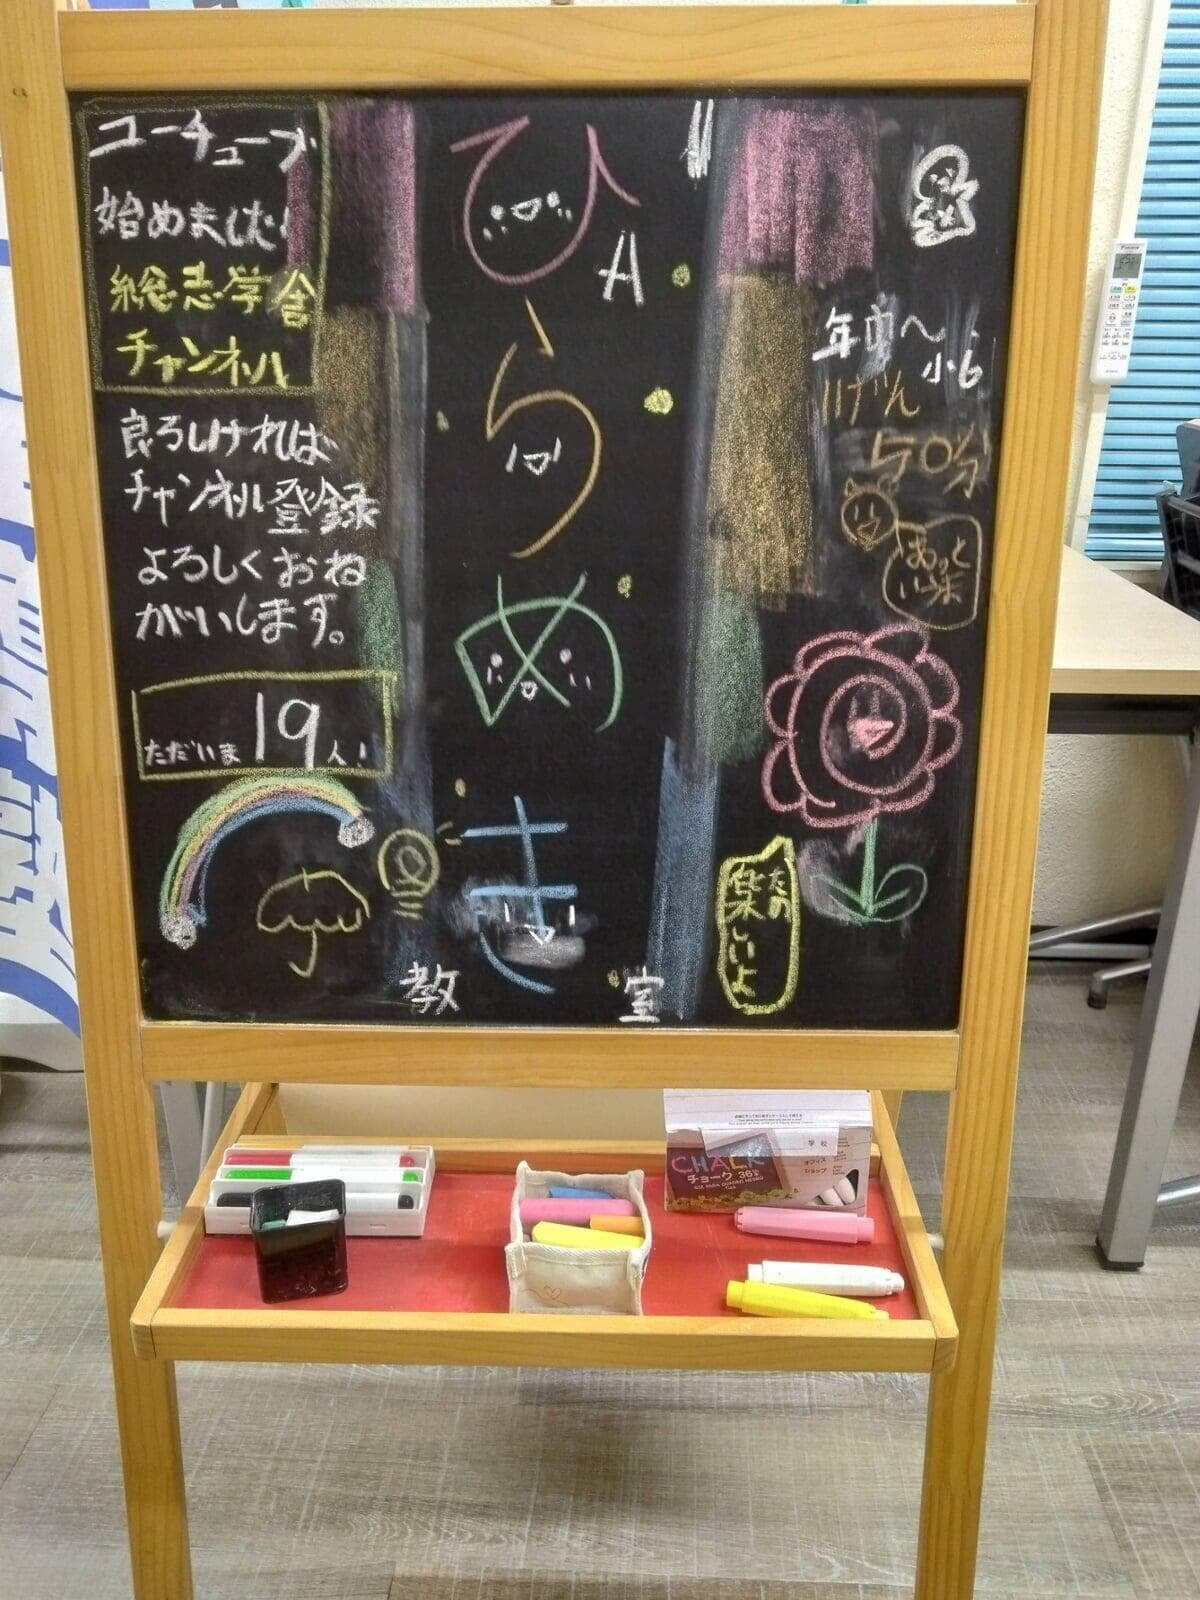 ユーチューブ
始めました!
総志学舎
チャンネル
良ろしければ
チャンネル登録
よろしくおね
がいします。
ただいま19人!
ひらめき
教室
A
年中〜
小6
じげん
50分
あっと
い味
たの
楽しいよ
CHALK
チョーク 36本
学校
オフィス
ショップ